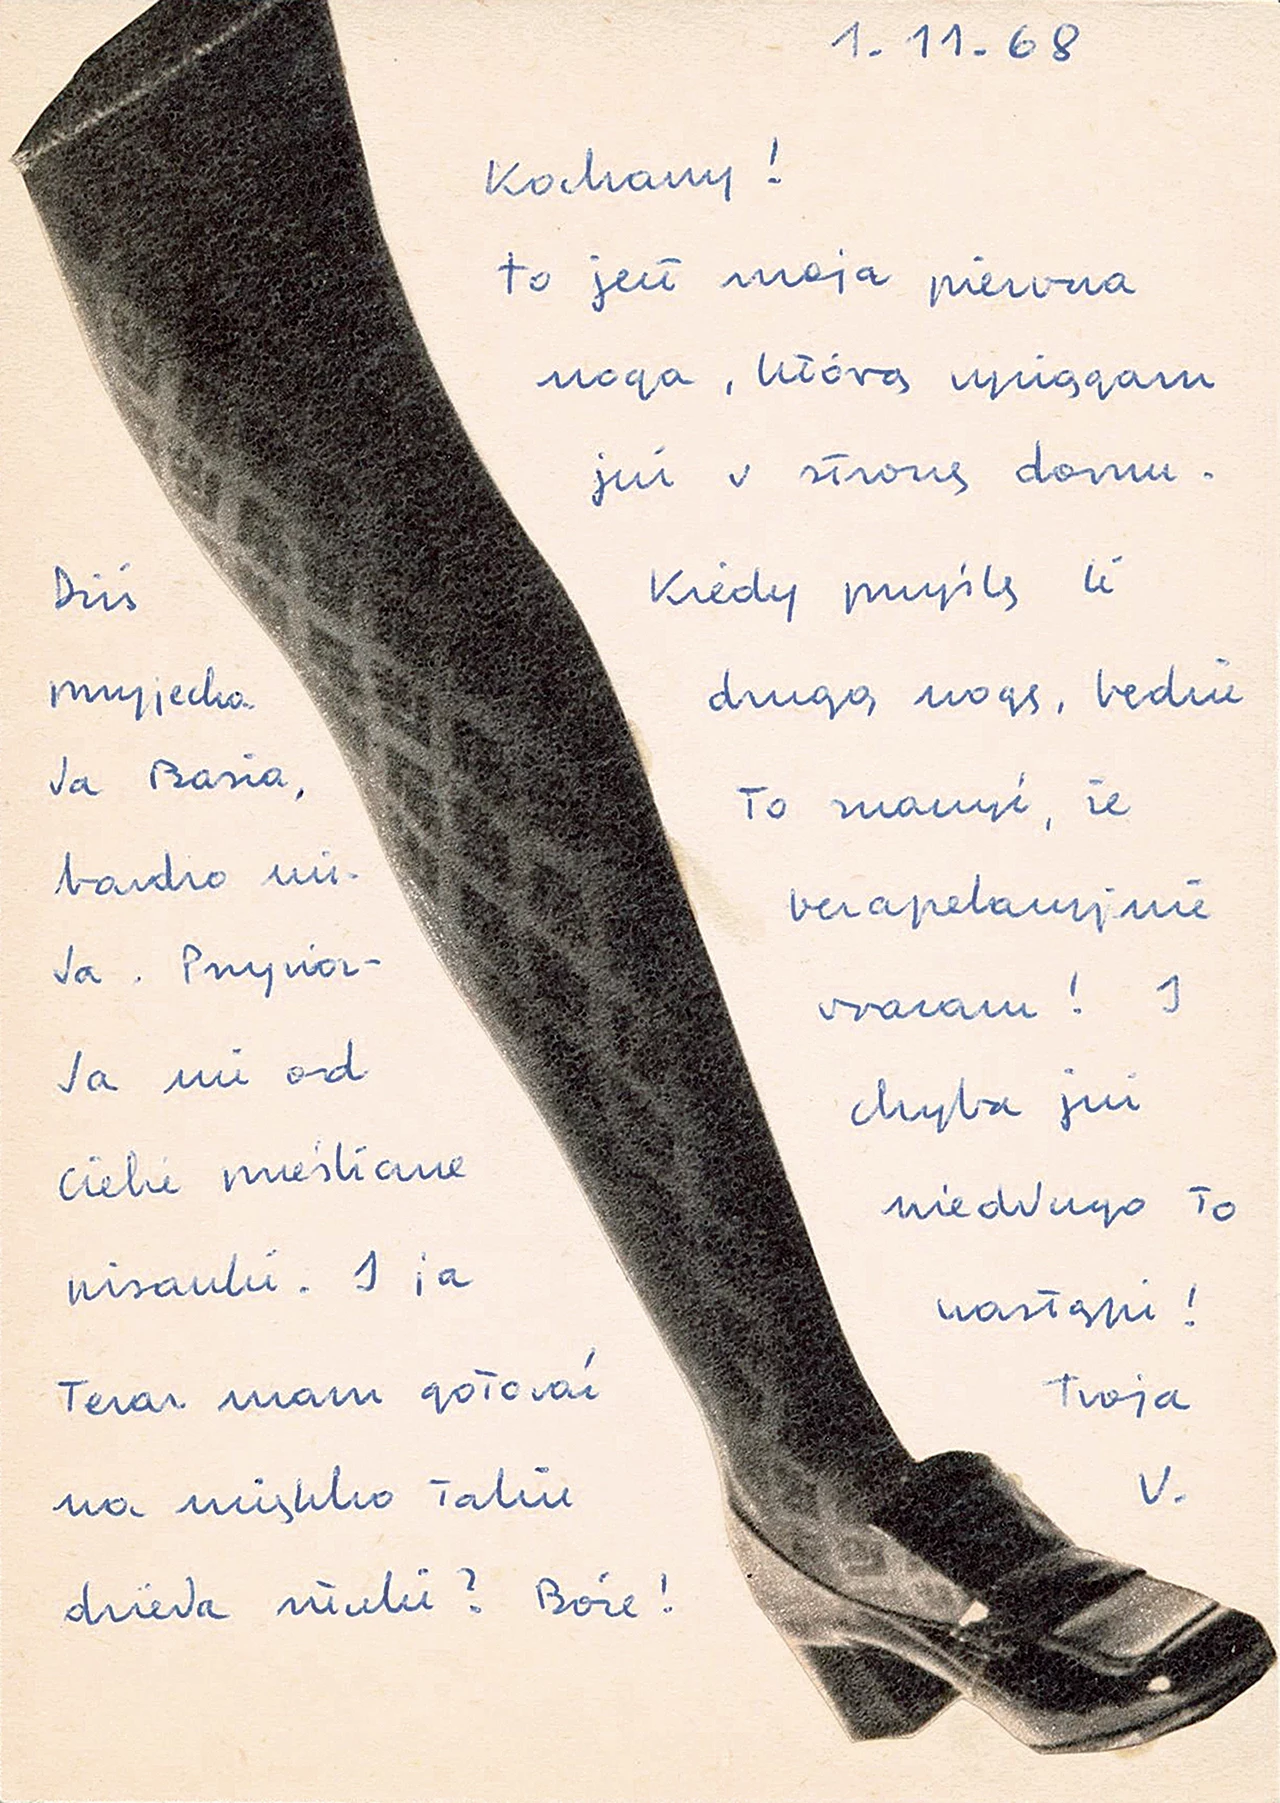 1.11.68
Kochany!
to jest moja pierwsza
noga, którą wyciągam
już w stronę domu.
Kiedy przyślę Ci
drugą nogę, będzie
to znaczyć, że
bezapelacyjnie
wracam! I
chyba już
niedługo to
nastąpi!
Twoja
W.
Dziś
przyjecha
ła Basia,
bardzo mi-
ła. Przywioz-
ła mi od
Ciebie prześliczne
pisanki. I ja
teraz mam gotować
na miękko takie
dzieła sztuki? Boże!